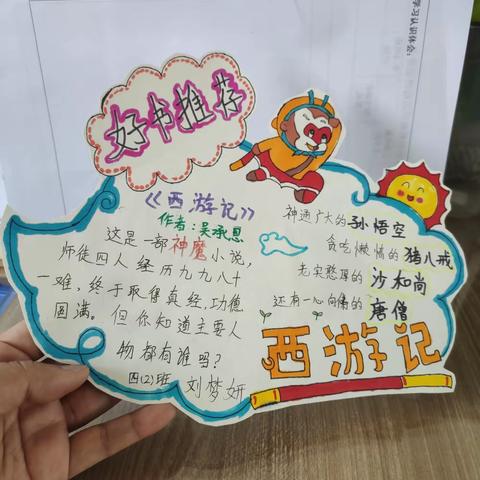 学习认识体会:
好书推荐
《西游记》
作者:吴承恩
这是一部神魔小说,
师徒四人经历九九八十
一难,终于取得真经,功德
圆满。但你知道主要人
物都有谁吗?
四(2)班 刘梦妍
神通广大的孙悟空
贪吃懒惰的猪八戒
老实憨厚的沙和尚
还有一心向佛的唐僧
西游记